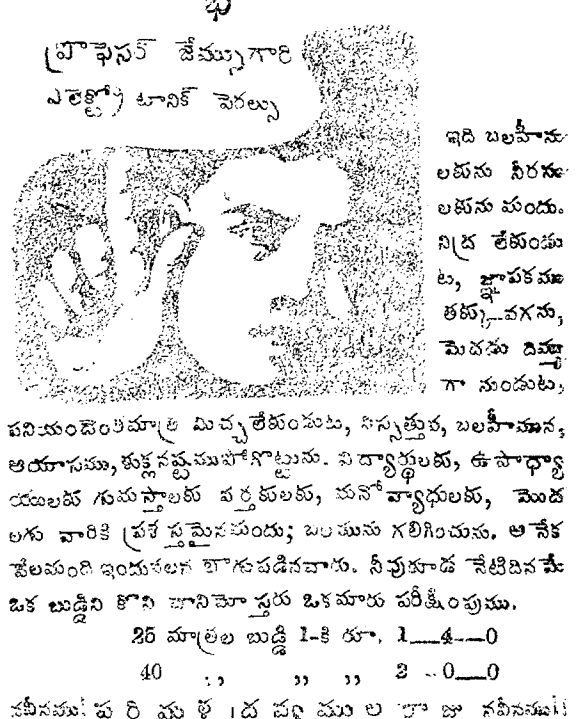 ప్రొఫెసర్ జేమ్సుగారి
ఎలెక్ట్రో టానిక్ పెరల్సు
ఇది బలహీను
లకును నీరసు
లకును మందు.
నిద్ర లేకుండు
ట, జ్ఞాపకము
తక్కువగను,
మెదడు దిమ్మ
గా నుండుట,
పనియందంతమాత్ర మిచ్చలేకుండుట, నిస్సత్తువ, బలహీనత,
ఆయాసము, శుక్లనష్టముపోగొట్టును. విద్యార్థులకు, ఉపాధ్యా
యులకు గుమస్తాలకు వర్తకులకు, మనోవ్యాధులకు, మొద
లగు వారికి ప్రశస్తమైనమందు; బలమును గలిగించును. అనేక
వేలమంది ఇందువలన బాగుపడినవారు. నీవుకూడ నేటిదినమే
ఒక బుడ్డిని కొని దానియొ స్తరు ఒకమారు పరీక్షింపుము.
25 మాత్రల బుడ్డి 1-కి రూ. 1__4—0
40 ,, ,, ,, 2 --0__0
నవీనము! పరిమళ ద్రవ్యముల రాజు నవీనము!!